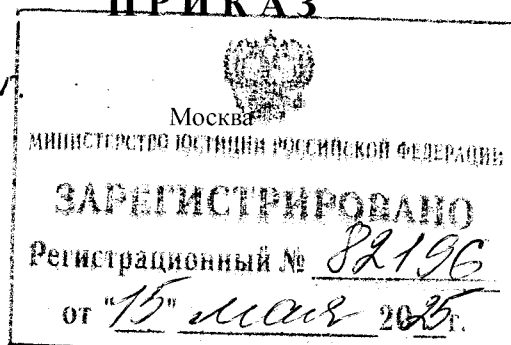 ПРИКАЗ
г.
Москва
МИНИСТЕРСТВО ЮСТИЦИИ РОССИЙСКОЙ ФЕДЕРАЦИИ
ЗАРЕГИСТРИРОВАНО
Регистрационный № 82196
от "15" мая 2025г.